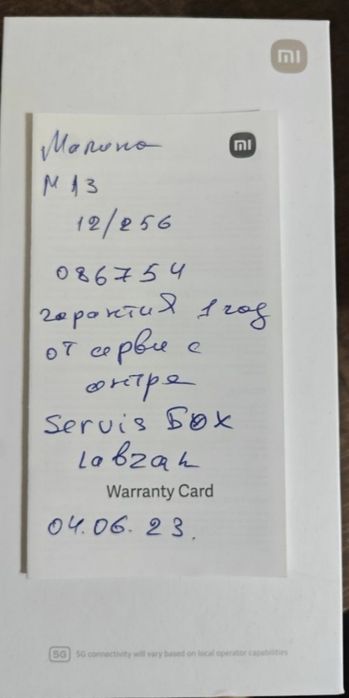 mi
Малика
mi
М 13
12/256
086754
гарантия 1 год
от серви с
онтре
Servis БОХ
Labzak
Warranty Card
04.06.23.
5G 5G connectivity will vary based on local operator capabilities